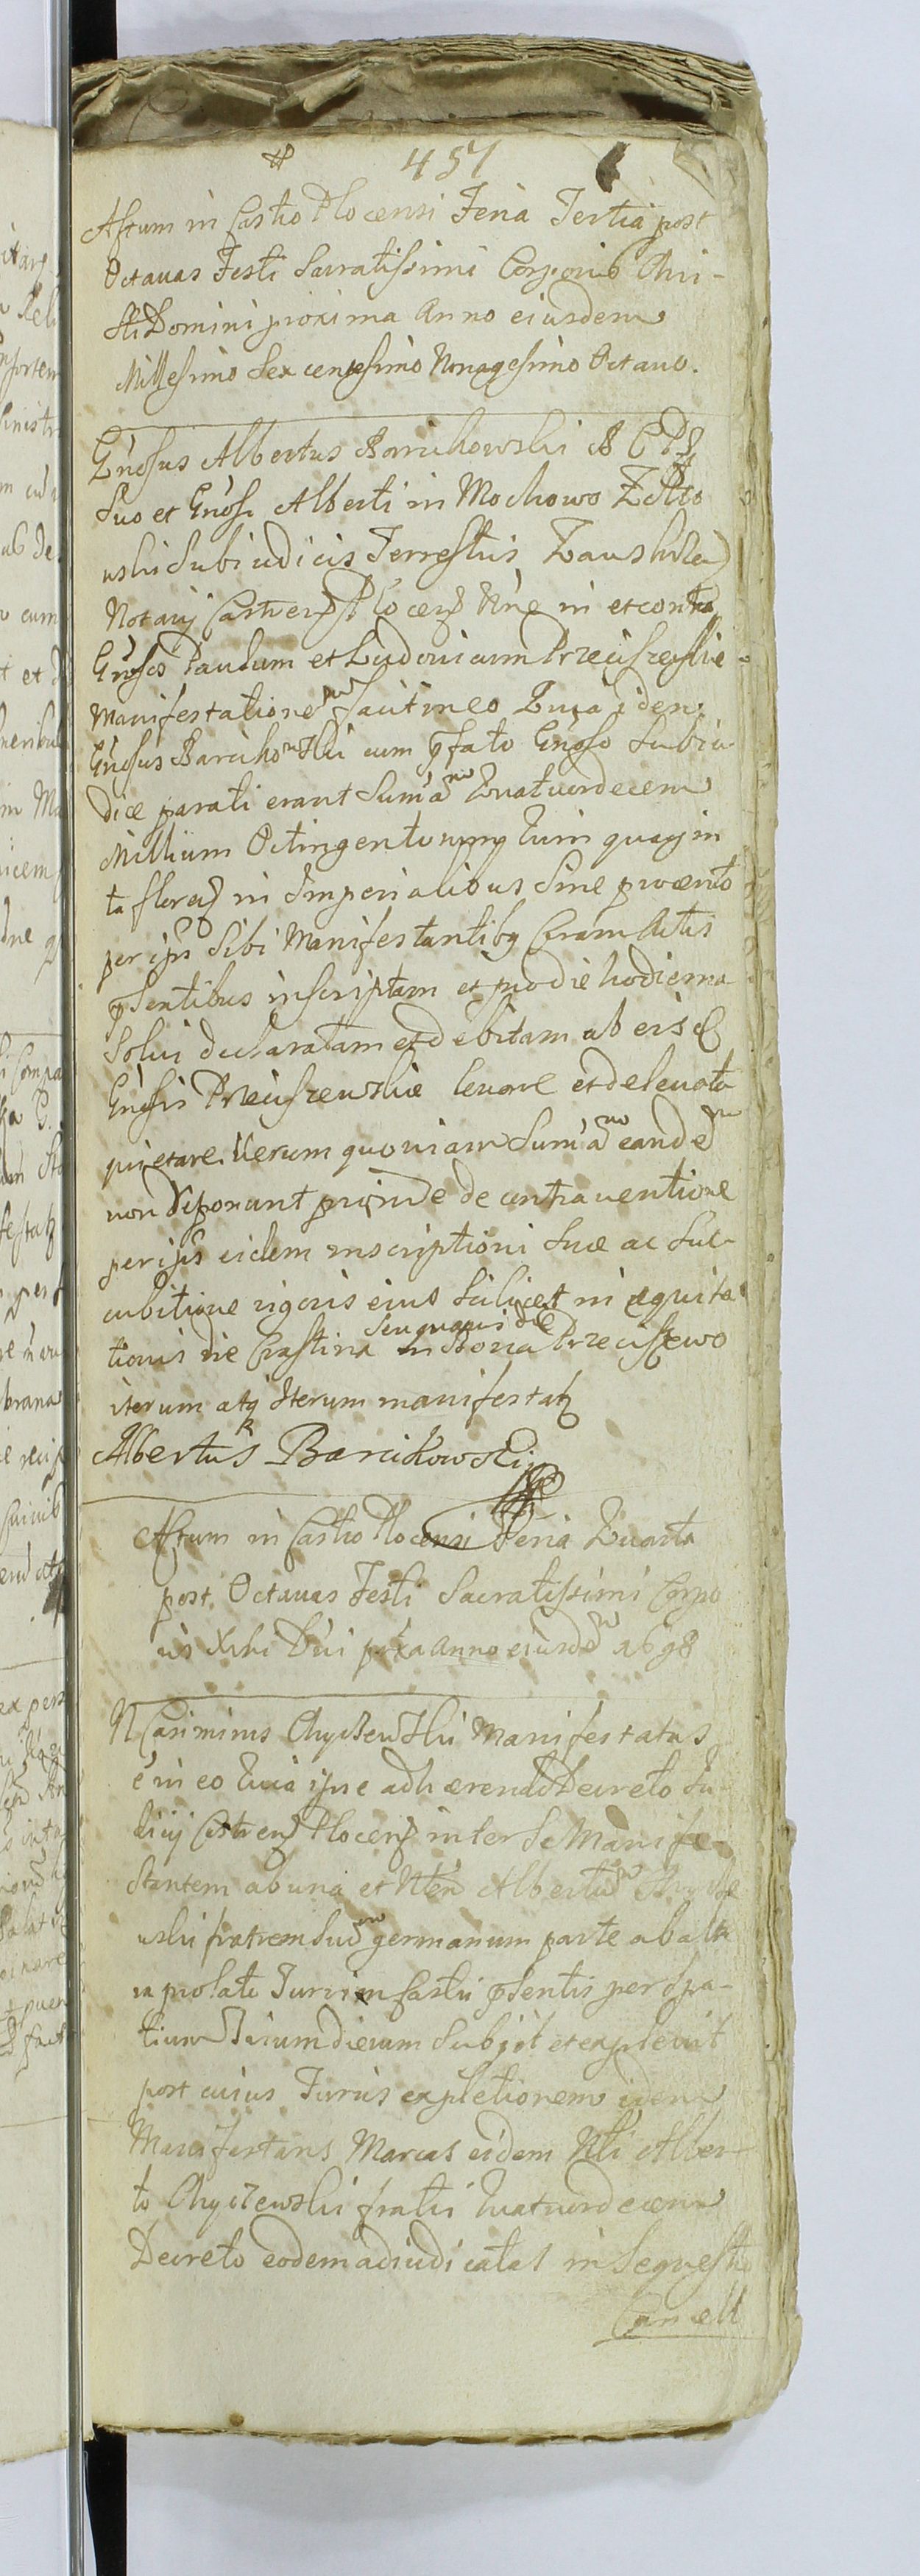 457
Actum in Castro Plocensi Feria Tertia post
Octavas Festi Sacratissimi Corporis Chri-
sti Domini proxima Anno eiusdem
Millesimo Sexcentesimo Nonagesimo Octavo.
Gnosus Albertus Barcikowski
Suo et Gnosi Alberti in Mochowo Zołto
wski Subiudicis Terrestris Zauskrz
Notarij Castren Plocen Nne in et contra
Gnosos Paulum et Ludovicum Przeciszewskie
Manifestationem facit in eo Quia idem
Gnosus Barcikowski cum pfato Gnoso Subiu
dice parati erant Summam Quatuordecem
Millium Octingentorum Quinquagin
ta floren in Imperialibus Sine provento
per ipsos Sibi Manifestantibq Coram Actis
psentibus inscriptam et pro die hodierna
Solvi declaratam et debitam ab eisd
Gnosis Przeciszewskie levare et de levata
quietare. Verum quoniam Summam eandem
non deponunt proinde de contraventione
per ipsos eidem inscriptioni Suae ac Suc
cubitione rigoris eius scilicet in equita
tionis die Crastina Seu quavis die in Bona Przeciszewo
iterum atq Iterum manifestatq
Albertus Barcikowski
Actum in Castro Plocensi Feria Quarta
post Octavas Festi Sacratissimi Corpo
ris Xthi Dni pxa anno eiusdem 1698
N Casimirus Chyczewski Manifestatus
e in eo Quia ipse adhaerendo Decreto Iu
dicij Castren Plocen inter Se Manife-
stantem ab una et Nlem Albertum Chycze
wski fratrem Suum germanum parte ab alte
ra prolato Turrim Castri psentis per Spa-
tium Trium dierum Subjit et explevit
post cuius Turris expletionem idem
Manifestans Marcas eidem Nli Alber-
to Chyczewski fratri Quatuordecem
Decreto eodem adiudicatas in Sequestro
Cancell